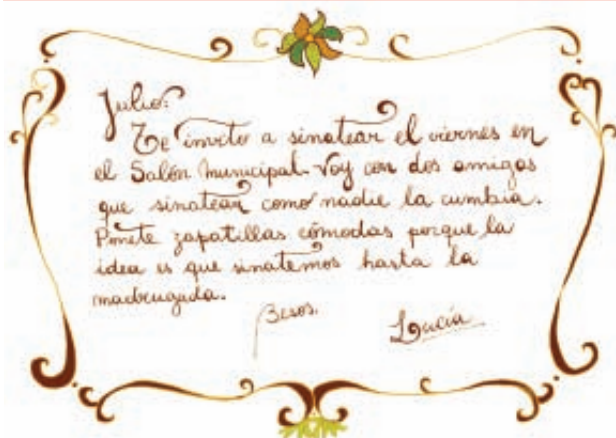 Julio:
Te invito a sinatear el viernes en
el Salón Municipal. Voy con dos amigas
que sinatean como nadie la cumbia.
Ponete zapatillas cómodas porque la
idea es que sinatemos hasta la
madrugada.
Besos.
Lucía